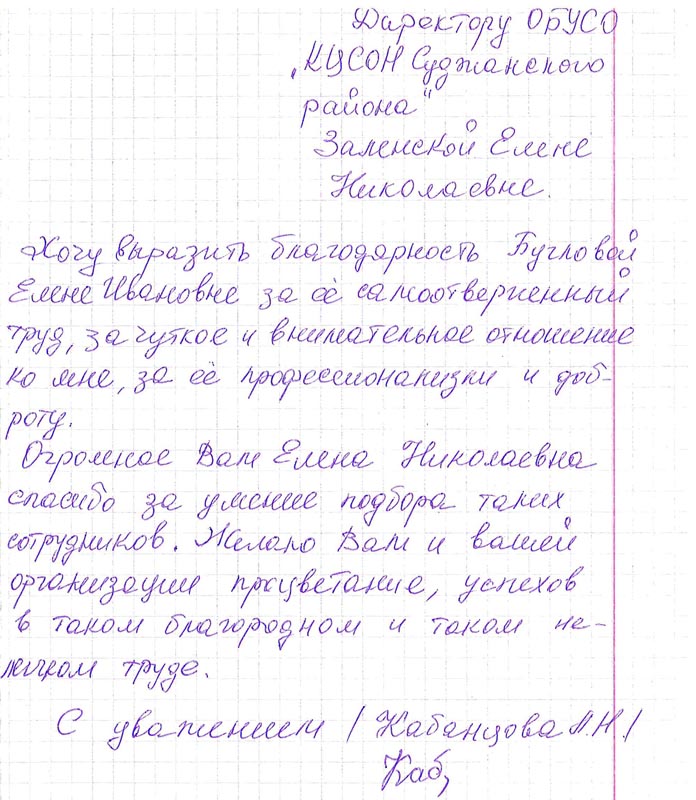 Директору ОБУСО
„КЦСОН Суджанского
района"
Заленской Елене
Николаевне.
Хочу выразить благодарность Бугловой
Елене Ивановне за её самоотверженный
труд, за чуткое и внимательное отношение
ко мне, за её профессионализм и доб-
роту.
Огромное Вам Елена Николаевна
спасибо за умение подбора таких
сотрудников. Желаю Вам и вашей
организации процветание, успехов
в таком благородном и таком не-
легком труде.
С уважением / Кабанцова Л.Н./
Каб